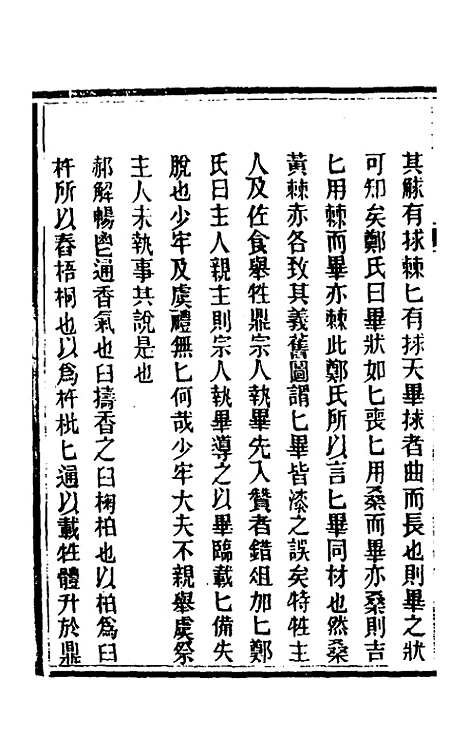 其觩有捄棘匕有捄天畢捄者曲而長也則畢之狀
可知矣鄭氏曰畢狀如匕喪匕用桑而畢亦桑則吉
匕用棘而畢亦棘此鄭氏所以言匕畢同材也然桑
黃棘亦各致其義舊圖謂匕畢皆漆之誤矣特牲主
人及佐食舉牲鼎宗人執畢先入贊者錯俎加匕鄭
氏曰主人親主則宗人執畢導之以畢臨載匕備失
脫也少牢及虞禮無匕何哉少牢大夫不親舉虞祭
主人未執事其說是也
郝解暢鬯通香氣也臼擣香之臼椈柏也以柏爲臼
杵所以舂梧桐也以爲杵枇匕通以載牲體升於鼎